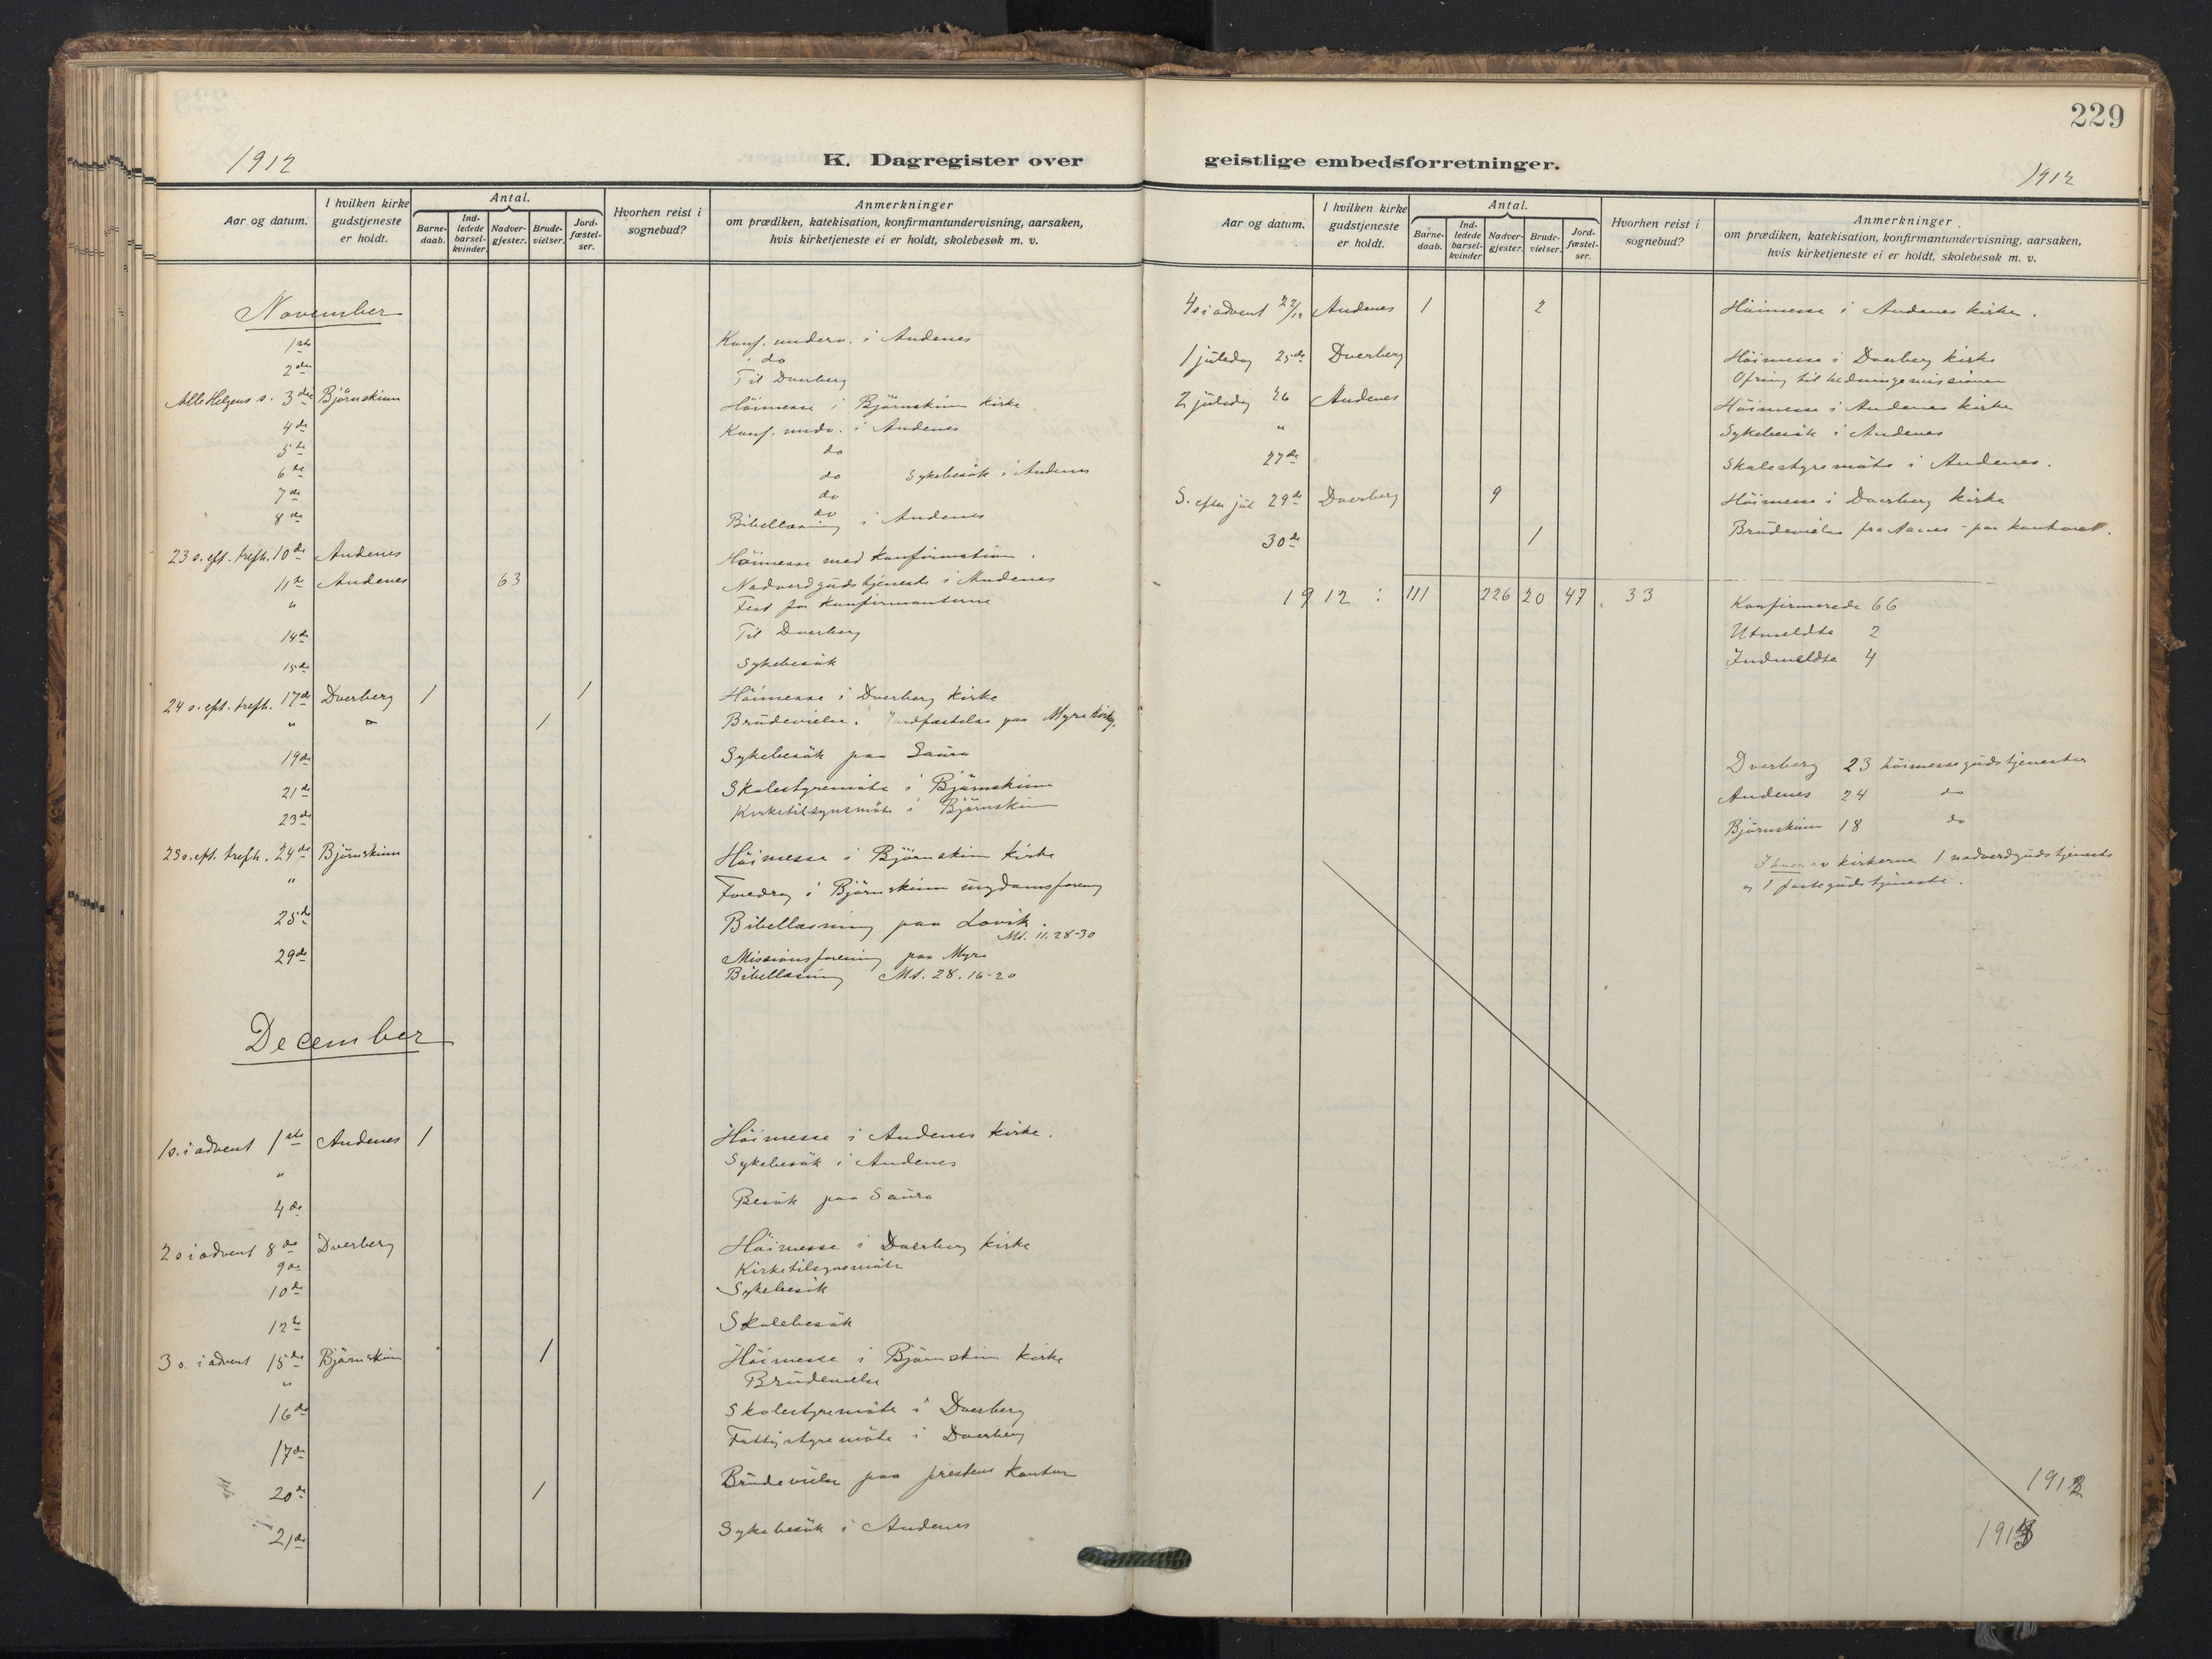 229
1912
K. Dagregister over
geistlige embedsforretninger.
1912
Aar og datum.
I hvilken kirke gudstjeneste er holdt.
Antal.
Barne-daab.
Ind-ledede barsel-kvinder.
Nadver-gjester.
Brude-vielser.
Jord-fæstel-ser.
Hvorhen reist i sognebud?
Anmerkninger
om prædiken, katekisation, konfirmantundervisning, aarsaken,
hvis kirketjeneste ei er holdt, skolebesøk m. v.
November
1ste Konf. underv. i Andenes
2den do
Til Dverberg
Alle Helgens s. 3die Björnskinn Höimesse i Björnskinn kirke
4de Konf. undv. i Andenes
5te do
6te do Sykebesök i Andenes
7de do
8de do
Bibellæsning i Andenes
23 s. eft. trefh. 10de Andenes Höimesse med Konfirmation.
11te Andenes 63 Nadverdgudstjeneste i Andenes
" Fest for Konfirmanterne
14de Til Dverberg
15de Sykebesök
24 s. eft. trefh. 17de Dverberg 1 1 Höimesse i Dverberg kirke
" " 1 Brudevielse. Jordfæstelse paa Myre kirkg.
19de Sykebesök paa Saura
21de Skolestyremöte i Björnskinn
23de Kirketilsynsmöte i Björnskinn
25 s. eft. trefh. 24de Björnskinn Höimesse i Björnskinn kirke
" Foredrag i Björnskinn ungdomsforening
25de Bibellæsning paa Lovik.
Mt. 11. 28-30
29de Missionsforening paa Myre
Bibellæsning Mt. 28. 16-20
December
1 s. i advent 1ste Andenes 1 Höimesse i Andenes kirke.
" Sykebesök i Andenes
4de Besök paa Saura
2 s i advent 8de Dverberg Höimesse i Dverberg kirke
9de Kirketilsynsmöte
10de Sykebesök
12te Skolebesök
3 s. i advent 15de Björnskinn 1 Höimesse i Björnskinn kirke
" Brudevielse
16de Skolestyremöte i Dverberg
17de Fattigstyremöte i Dverberg
20de 1 Brudevielse paa prestens kontor
21de Sykebesök i Andenes
Aar og datum.
I hvilken kirke gudstjeneste er holdt.
Antal.
Barne-daab.
Ind-ledede barsel-kvinder
Nadver-gjester.
Brude-vielser.
Jord-fæstel-ser.
Hvorhen reist i sognebud?
Anmerkninger
om prædiken, katekisation, konfirmantundervisning, aarsaken,
hvis kirketjeneste ei er holdt, skolebesøk m. v.
4 s i advent 22/12 Andenes 1 2 Höimesse i Andenes kirke.
1 juledag 25de Dverberg Höimesse i Dverberg kirke
Ofring til hedningemissionen
2 juledag 26 Andenes Höimesse i Andenes kirke
" Sykebesök i Andenes
27de Skolestyremöte i Andenes.
S. efter jul 29de Dverberg 9 Höimesse i Dverberg kirke
30de 1 Brudevielse fra - paa kontoret.
1912 : 111 226 20 47 33 Konfirmerede 66
Utmeldte 2
Indmeldte 4
Dverberg 23 höimessegudstjenester
Andenes 24 do
Björnskinn 18 do
I hver av kirkerne 1 nadverdgudstjeneste
og 1 fastegudstjeneste.
1912
1913